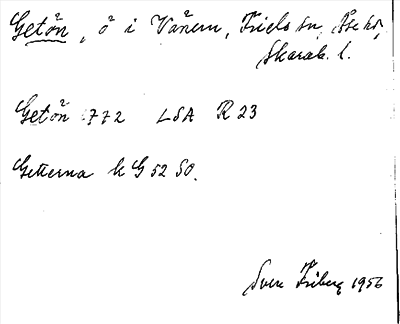 Getön, ö i Vänern, Friels sn, Åse hd,
Skarab. l.
Getön 1772 LSA R 23
Getterna k G 52 SO.
Sven Friberg 1956